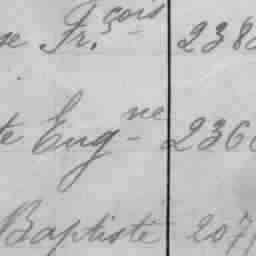 se Fr.çois 238
te Eug-ne 236
Baptiste 207